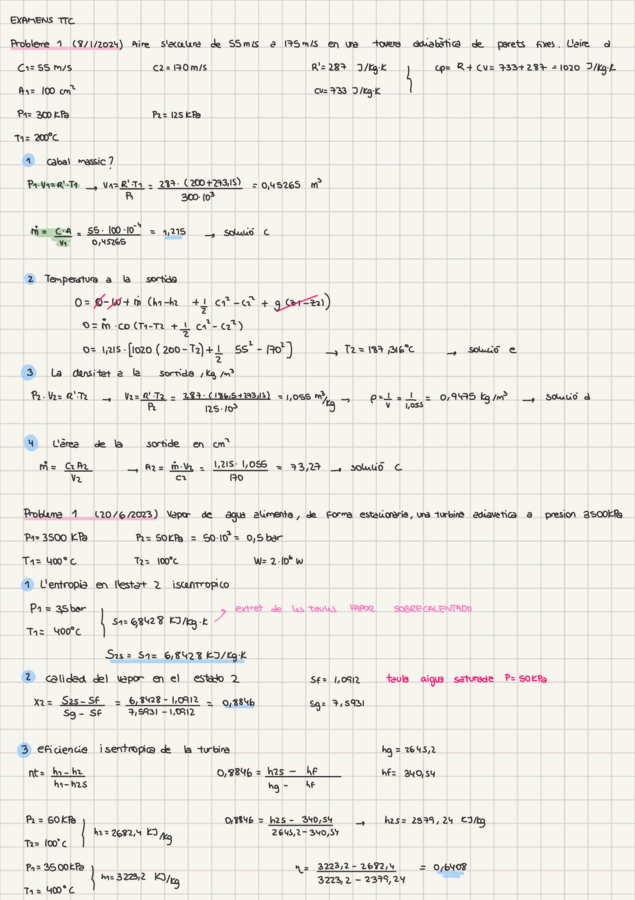 EXAMENS TTC
Problema 1 (8/1/2024) Aire s'accelera de 55m/s a 175m/s en una tovera adiabàtica de parets fixes. L'aire a
C1 = 55 m/s C2 = 170 m/s R' = 287 J/kg·K cp = R + cv = 733+287 = 1020 J/kg·K
A1 = 100 cm² cv = 733 J/kg·K
P1 = 300 kPa P2 = 125 kPa
T1 = 200°C
1 cabal massic?
P1·V1 = R'·T1 → V1 = R'·T1 / P1 = 287·(200+273,15) / 300·10³ = 0,45265 m³
ṁ = C·A / V1 = 55·100·10⁻⁴ / 0,45265 = 1,215 → solució c
2 Temperatura a la sortida
0 = Q - W + ṁ (h1-h2 + 1/2 C1² - C2² + g (z1-z2))
0 = ṁ · CD (T1-T2 + 1/2 C1² - C2²)
0 = 1,215 · [1020 (200 - T2) + 1/2 55² - 170²] → T2 = 187,316°C → solució e
3 La densitat a la sortida, kg/m³
P2·V2 = R'·T2 → V2 = R'·T2 / P2 = 287·(186,5+273,15) / 125·10³ = 1,055 m³/kg → ρ = 1/V = 1/1,055 = 0,9475 kg/m³ → solució d
4 L'àrea de la sortida en cm²
ṁ = C2A2 / V2 → A2 = ṁ·V2 / C2 = 1,215·1,055 / 170 = 73,27 → solució C
Problema 1 (20/6/2023) Vapor de agua alimenta, de forma estacionaria, una turbina adiavetica a presion 3500kPa
P1 = 3500 KPa P2 = 50KPa = 50·10³ = 0,5 bar
T1 = 400°C T2 = 100°C W = 2·10⁶ W
1 L'entropia en l'estat 2 isentropico
P1 = 35 bar
T1 = 400°C } S1 = 6,8428 KJ/Kg·K extret de les taules VAPOR SOBRECALENTADO
S2S = S1 = 6,8428 KJ/Kg·K
2 calidad del vapor en el estado 2 Sf = 1,0912 taula aigua saturada P = 50KPa
X2 = S2S - Sf / Sg - Sf = 6,8428 - 1,0912 / 7,5931 - 1,0912 = 0,8846 Sg = 7,5931
3 eficiencia isentropica de la turbina hg = 2645,2
nt = h1 - h2 / h1 - h2S 0,8846 = h2S - hf / hg - hf hf = 340,54
P2 = 50 KPa
T2 = 100°C } h2 = 2682,4 KJ/kg 0,8846 = h2S - 340,54 / 2645,2 - 340,54 → h2S = 2379,24 KJ/kg
P1 = 3500KPa
T1 = 400°C } h1 = 3223,2 KJ/kg η = 3223,2 - 2682,4 / 3223,2 - 2379,24 = 0,6408